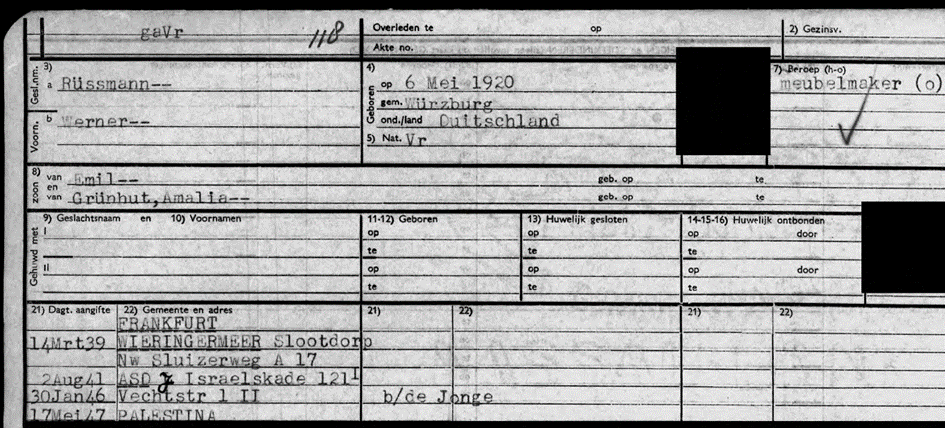 gaVr 118 Overleden te op 2) Gezinsv.
Akte no.
3) Gesl.nm. a Rüssmann-- 4) Geboren op 6 Mei 1920 7) Beroep (h-o)
meubelmaker (o)
gem. Würzburg
Voorn. b Werner-- ond./land Duitschland
5) Nat. Vr
8) zoon van Emil-- geb. op te
en
van Grünhut,Amalia-- geb. op te
9) Geslachtsnaam en 10) Voornamen 11-12) Geboren 13) Huwelijk gesloten 14-15-16) Huwelijk ontbonden
Gehuwd met I op op op door
te te te
II op op op door
te te te
21) Dagt. aangifte 22) Gemeente en adres 21) 22) 21) 22)
FRANKFURT
14Mrt39 WIERINGERMEER Slootdorp
Nw Sluizerweg A 17
2Aug41 ASD Z Israelskade 121I
30Jan46 Vechtstr 1 II b/de Jonge
17Mei47 PALESTINA